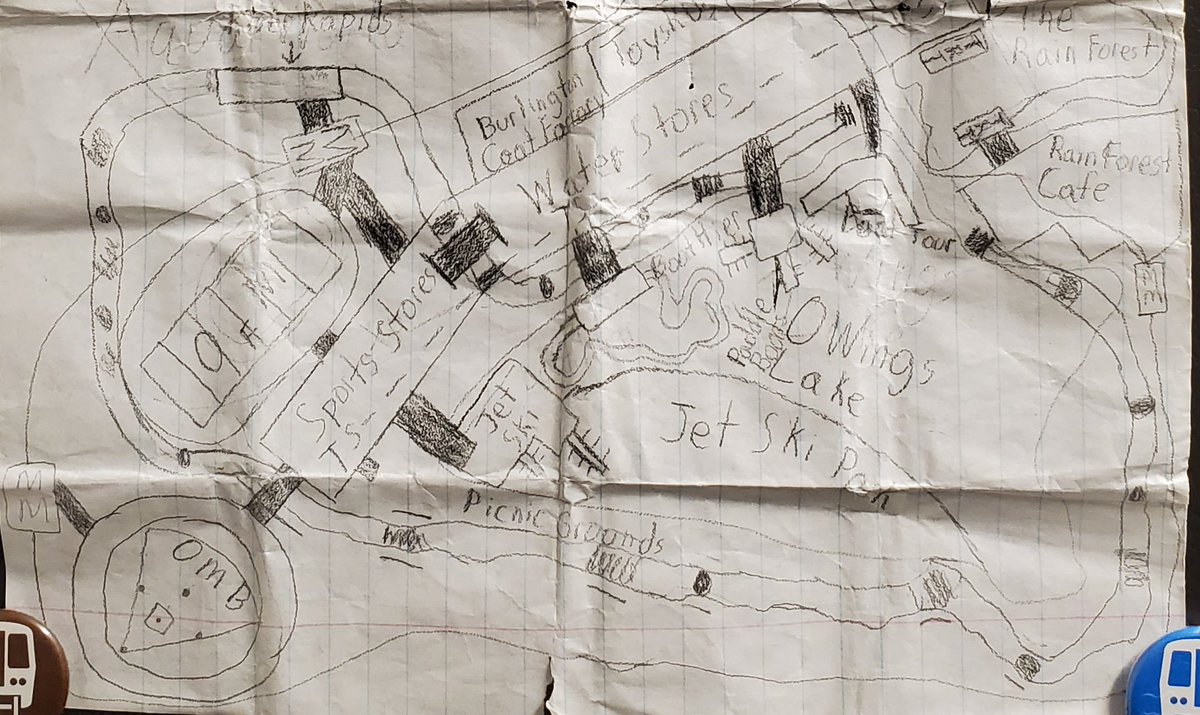 Rapids
Toys
The
Rain Forest
Burlington
Coat Factory
Water Stores
Rain Forest
Cafe
Tour
Sports Stores
TS
OWings
Lake
Paddle
Boat
Jet
Ski
Jet Ski Par
M
M
Picnic Grounds
OMB